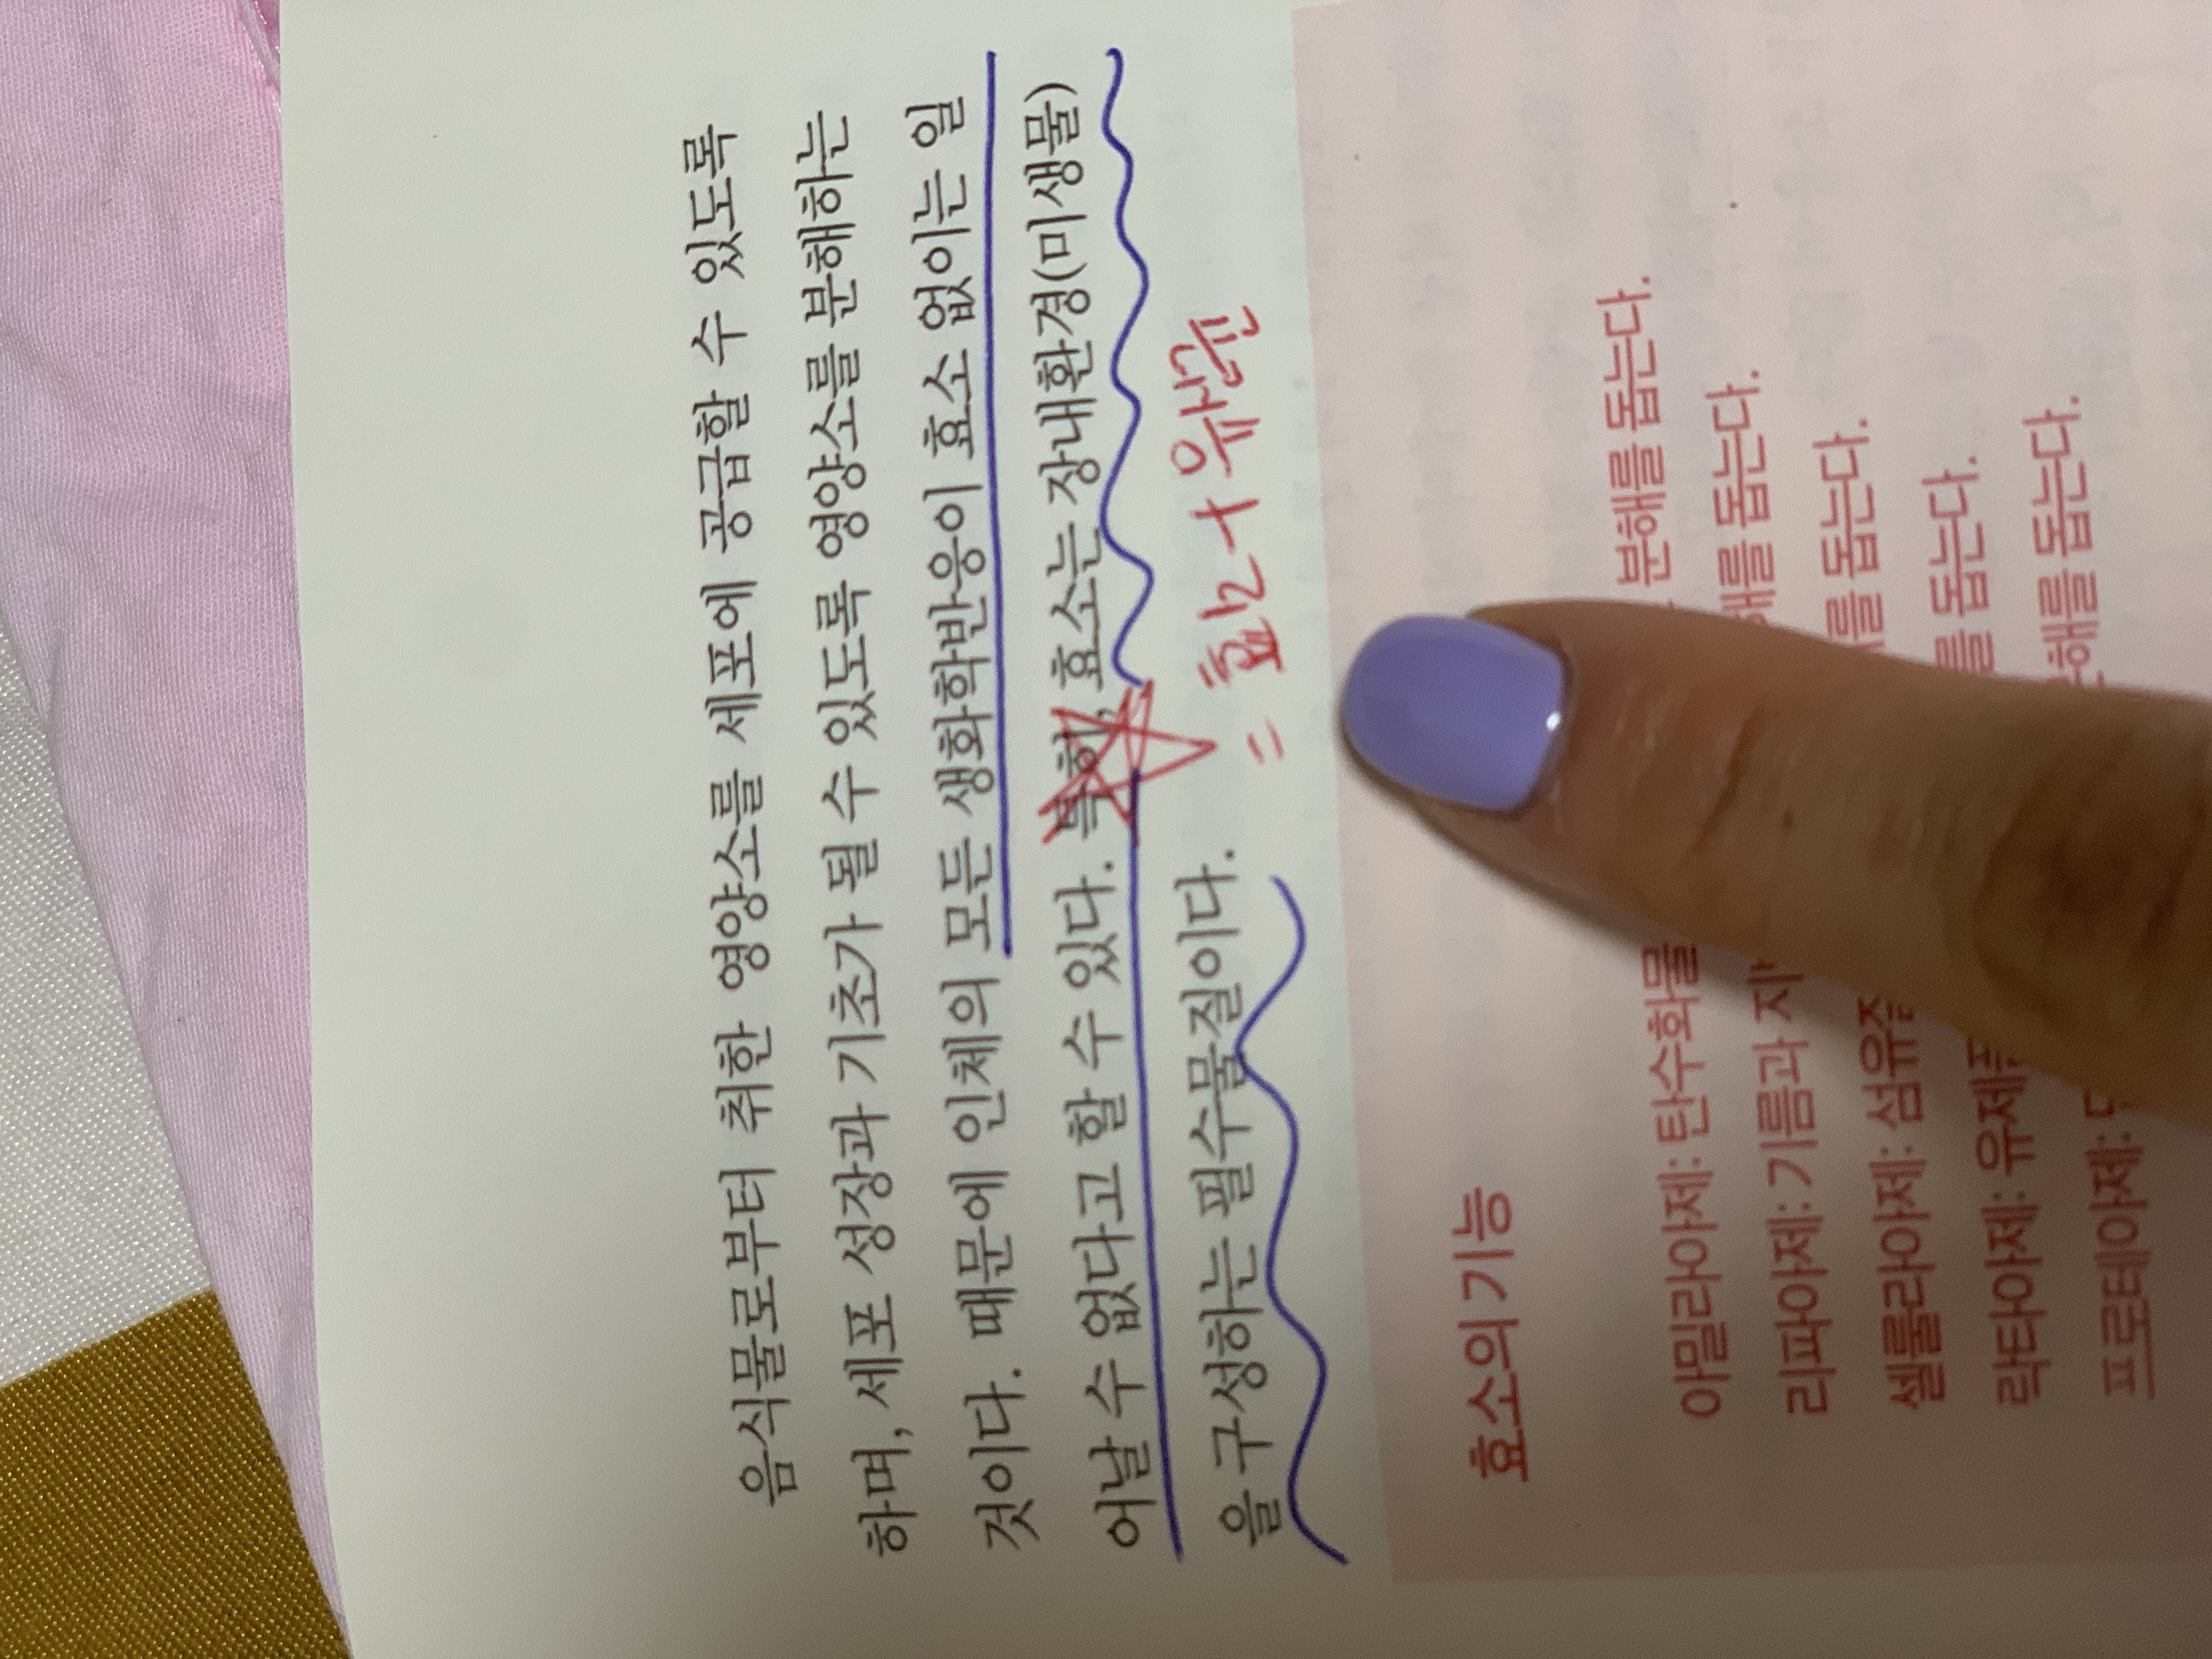 음식물로부터 취한 영양소를 세포에 공급할 수 있도록
하며, 세포 성장과 기초가 될 수 있도록 영양소를 분해하는
것이다. 때문에 인체의 모든 생화학반응이 효소 없이는 일
어날 수 없다고 할 수 있다. 특히, 효소는 장내환경(미생물)
을 구성하는 필수물질이다.
= 효소+유산균
효소의 기능
아밀라아제: 탄수화물 분해를 돕는다.
리파아제: 기름과 를 돕는다.
셀룰라아제: 를 돕는다.
락타아제: 유제품 를 돕는다.
프로테아제: 분해를 돕는다.